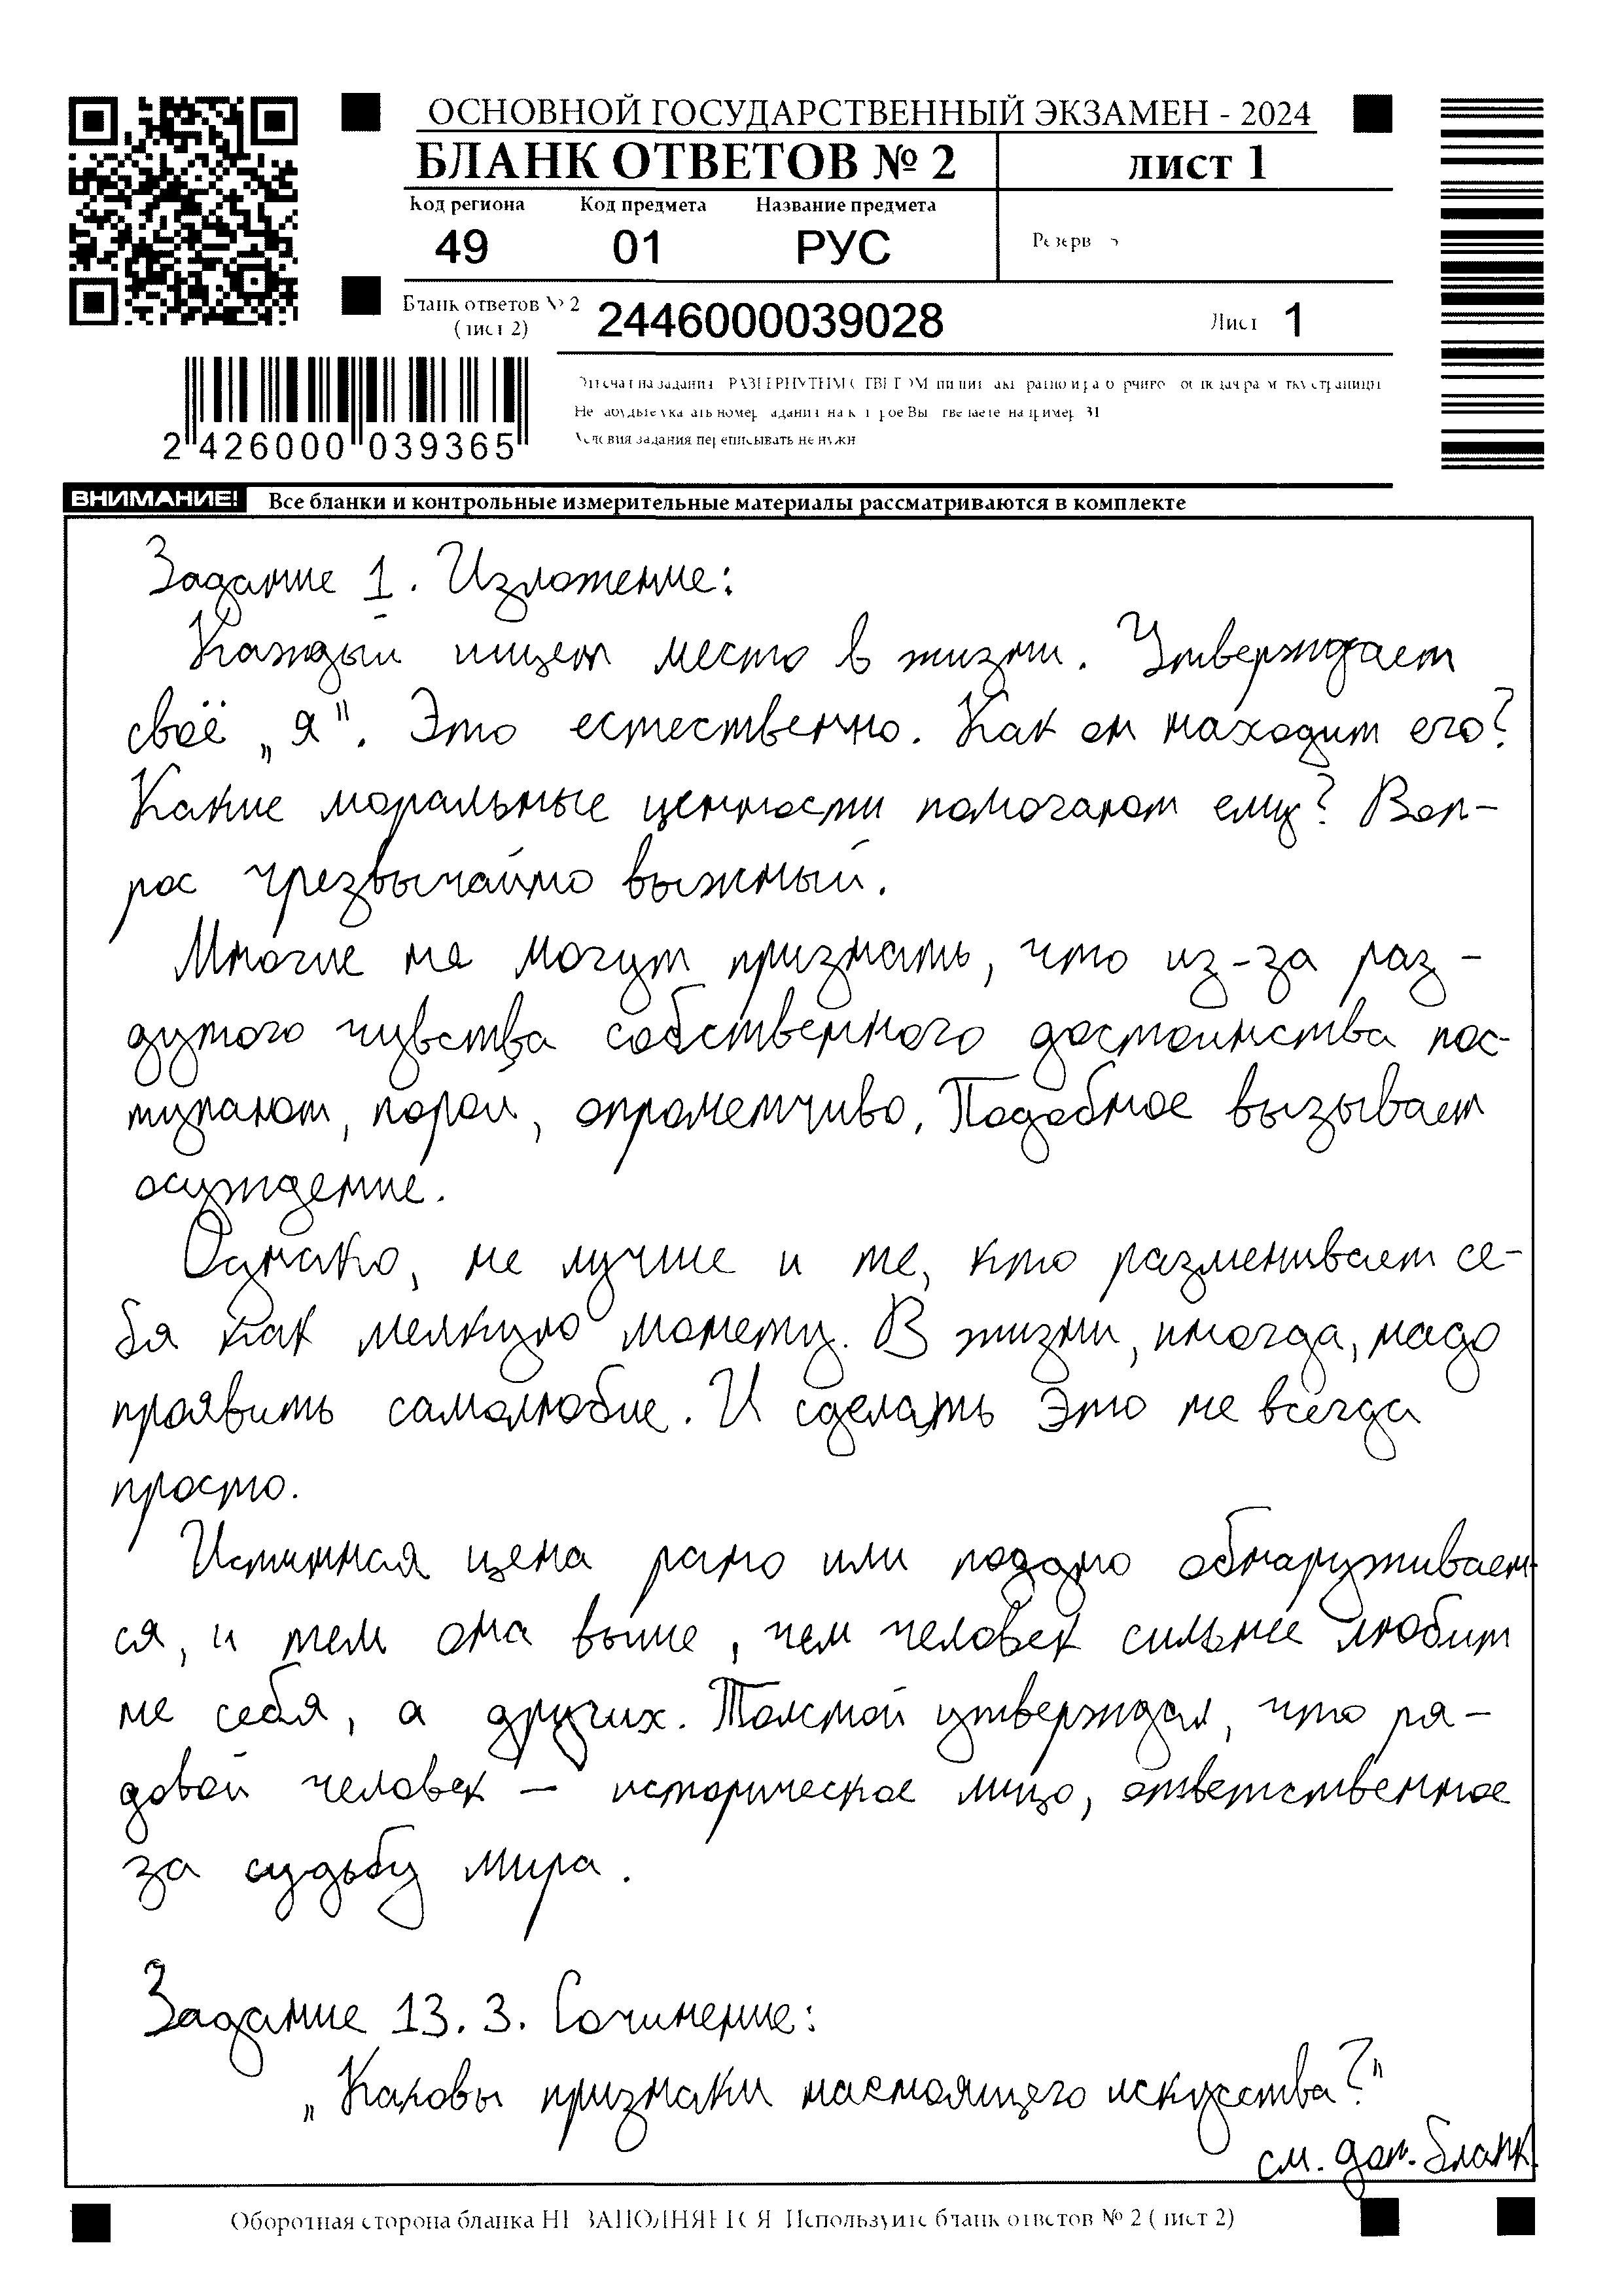 ОСНОВНОЙ ГОСУДАРСТВЕННЫЙ ЭКЗАМЕН - 2024
БЛАНК ОТВЕТОВ № 2 лист 1
Код региона Код предмета Название предмета
49 01 РУС Резерв
Бланк ответов № 2 (лист 2) 2446000039028 Лист 1
2 426000 039365
ВНИМАНИЕ! Все бланки и контрольные измерительные материалы рассматриваются в комплекте
Задание 1. Изложение:
Каждый ищет место в жизни. Утверждает
своё „я". Это естественно. Как он находит его?
Какие моральные ценности помогают ему? Воп-
рос чрезвычайно выжный.
Многие не могут признать, что из-за раз-
дутого чувства собственного достоинства пос-
тупают, порой, опрометчиво. Подобное вызывает
осуждение.
Однако, не лучше и те, кто разменивает се-
бя как мелкую монету. В жизни, иногда, надо
проявить самолюбие. И сделать это не всегда
просто.
Истинная цена рано или поздно обнаруживает-
ся, и тем она выше, чем человек сильнее любит
не себя, а других. Толстой утверждал, что ря-
довой человек - историческое лицо, ответственное
за судьбу мира.
Задание 13.3. Сочинение:
„Каковы признаки настоящего искусства?"
см. доп. бланк
Оборотная сторона бланка НЕ ЗАПОЛНЯЕТСЯ Используйте бланк ответов № 2 (лист 2)